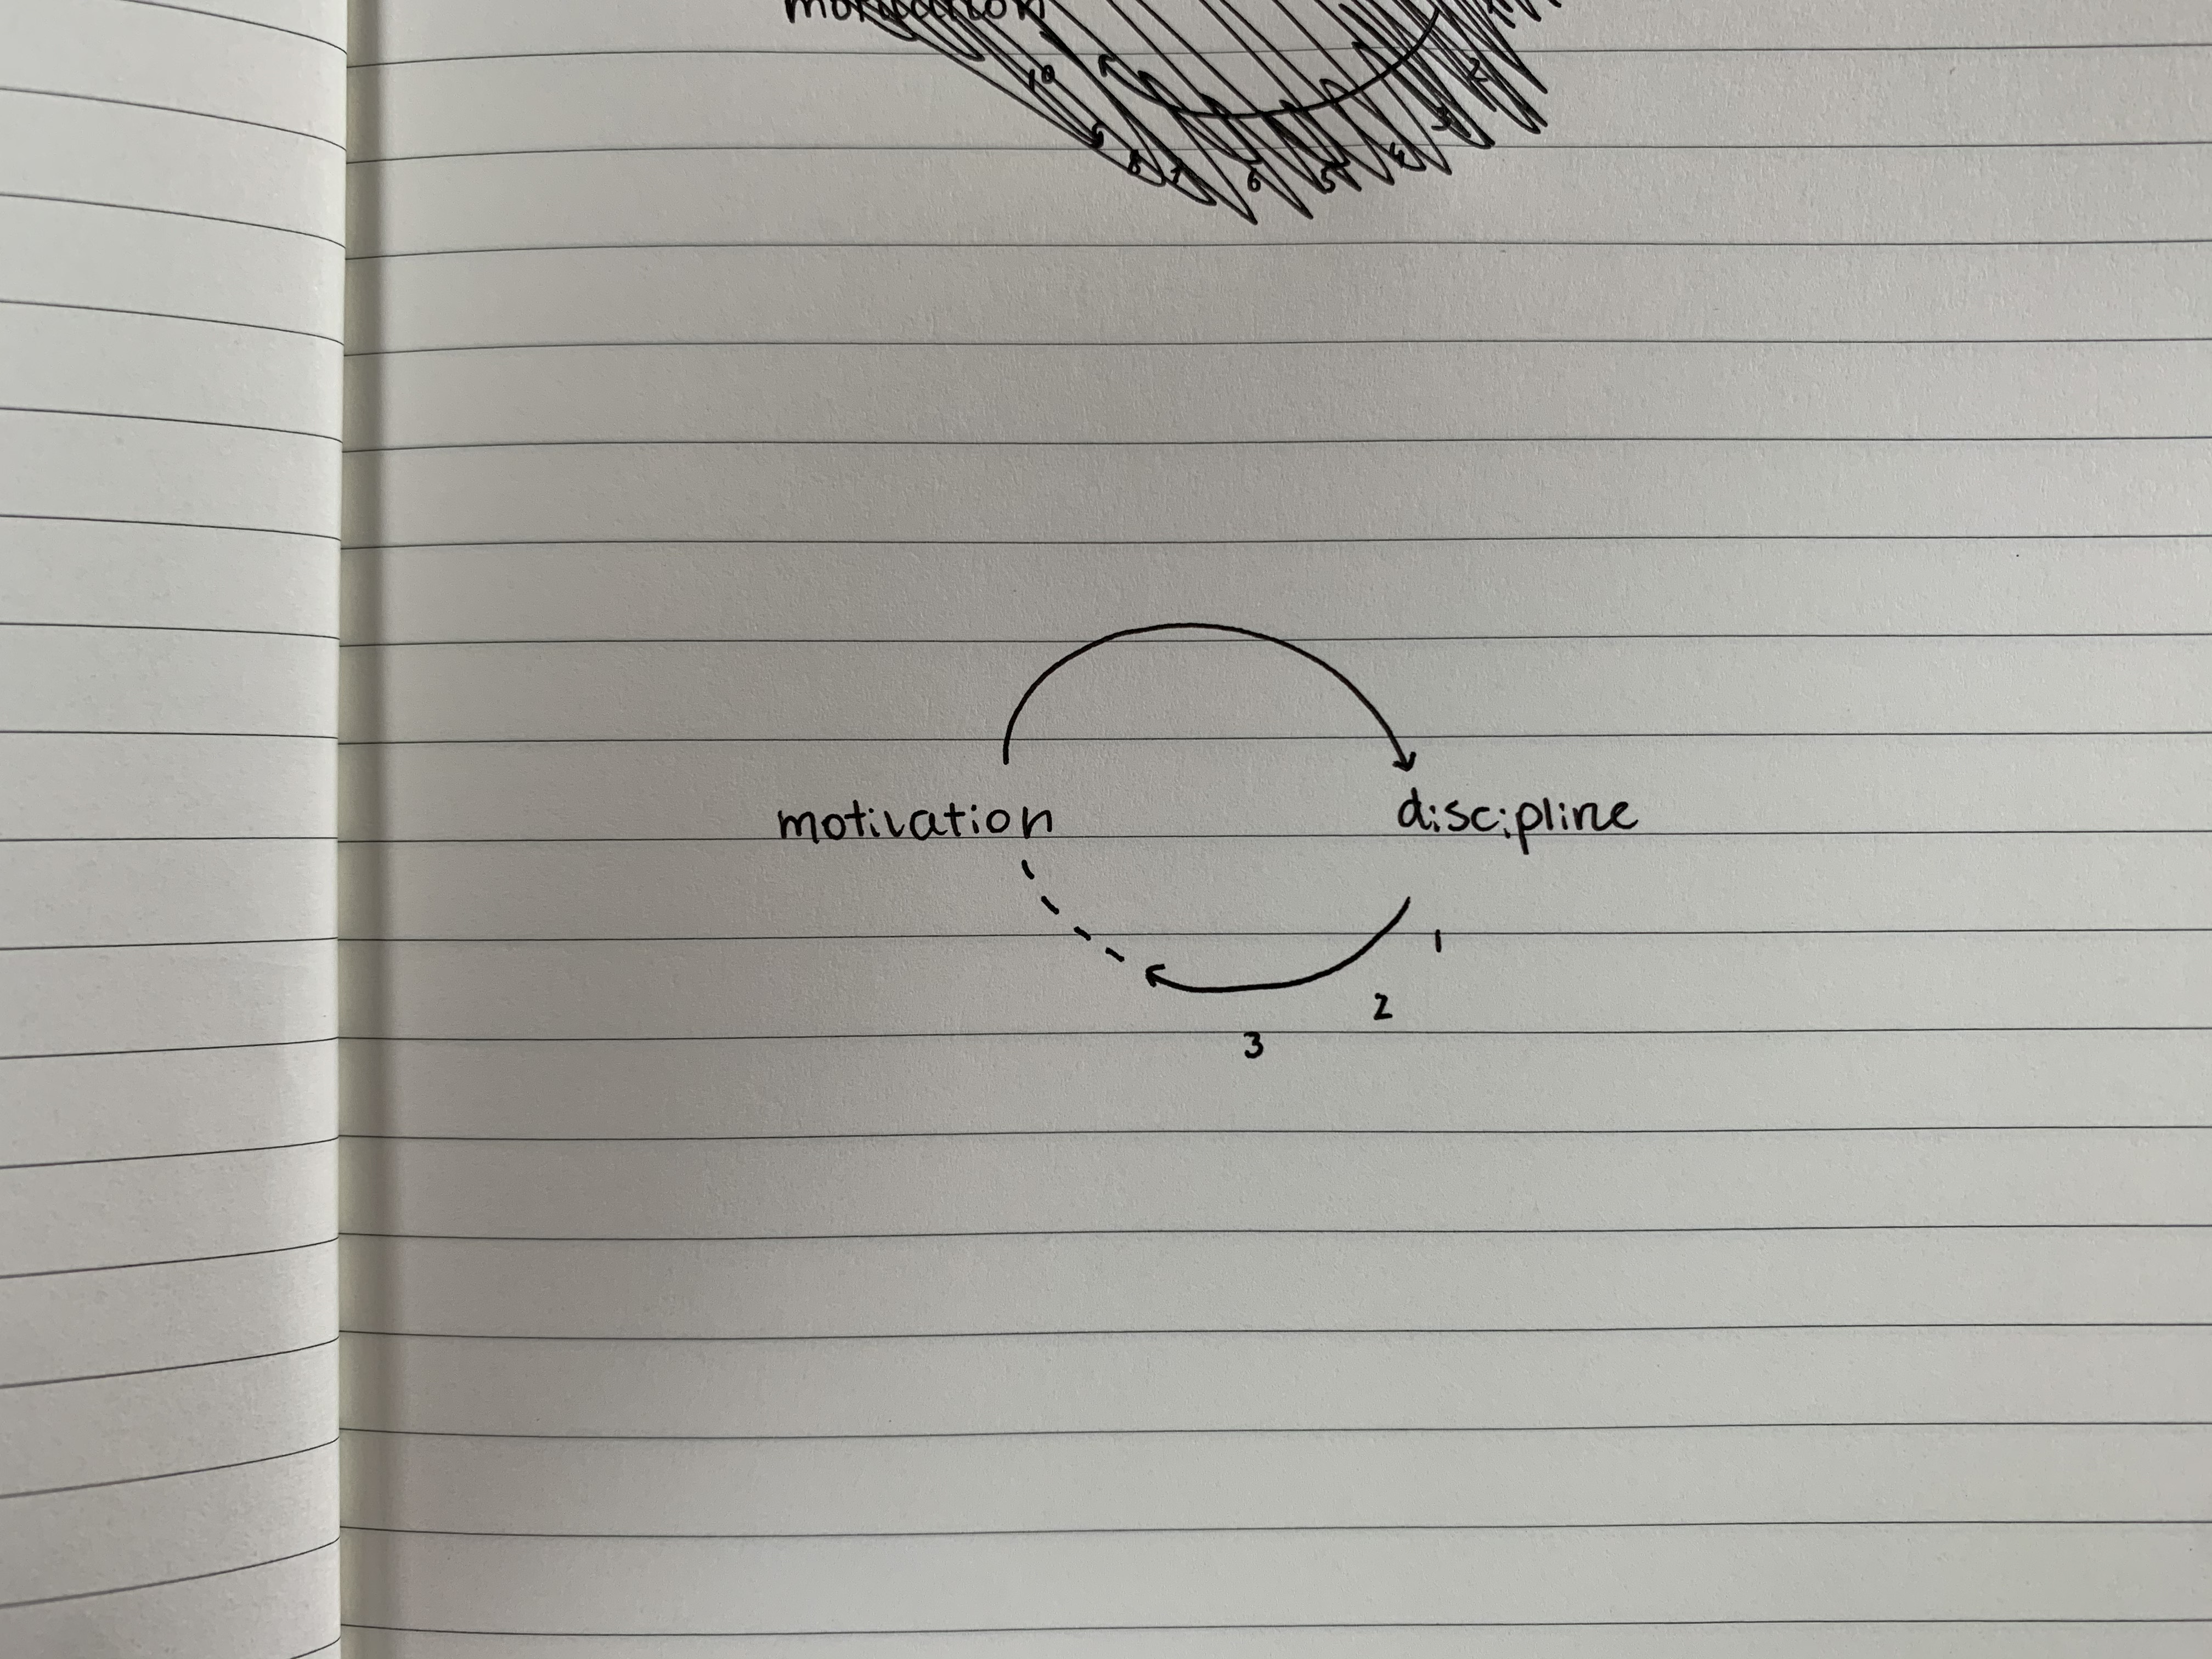 motivation
10
8 7 6 5 4 3 2
motivation discipline
1
2
3